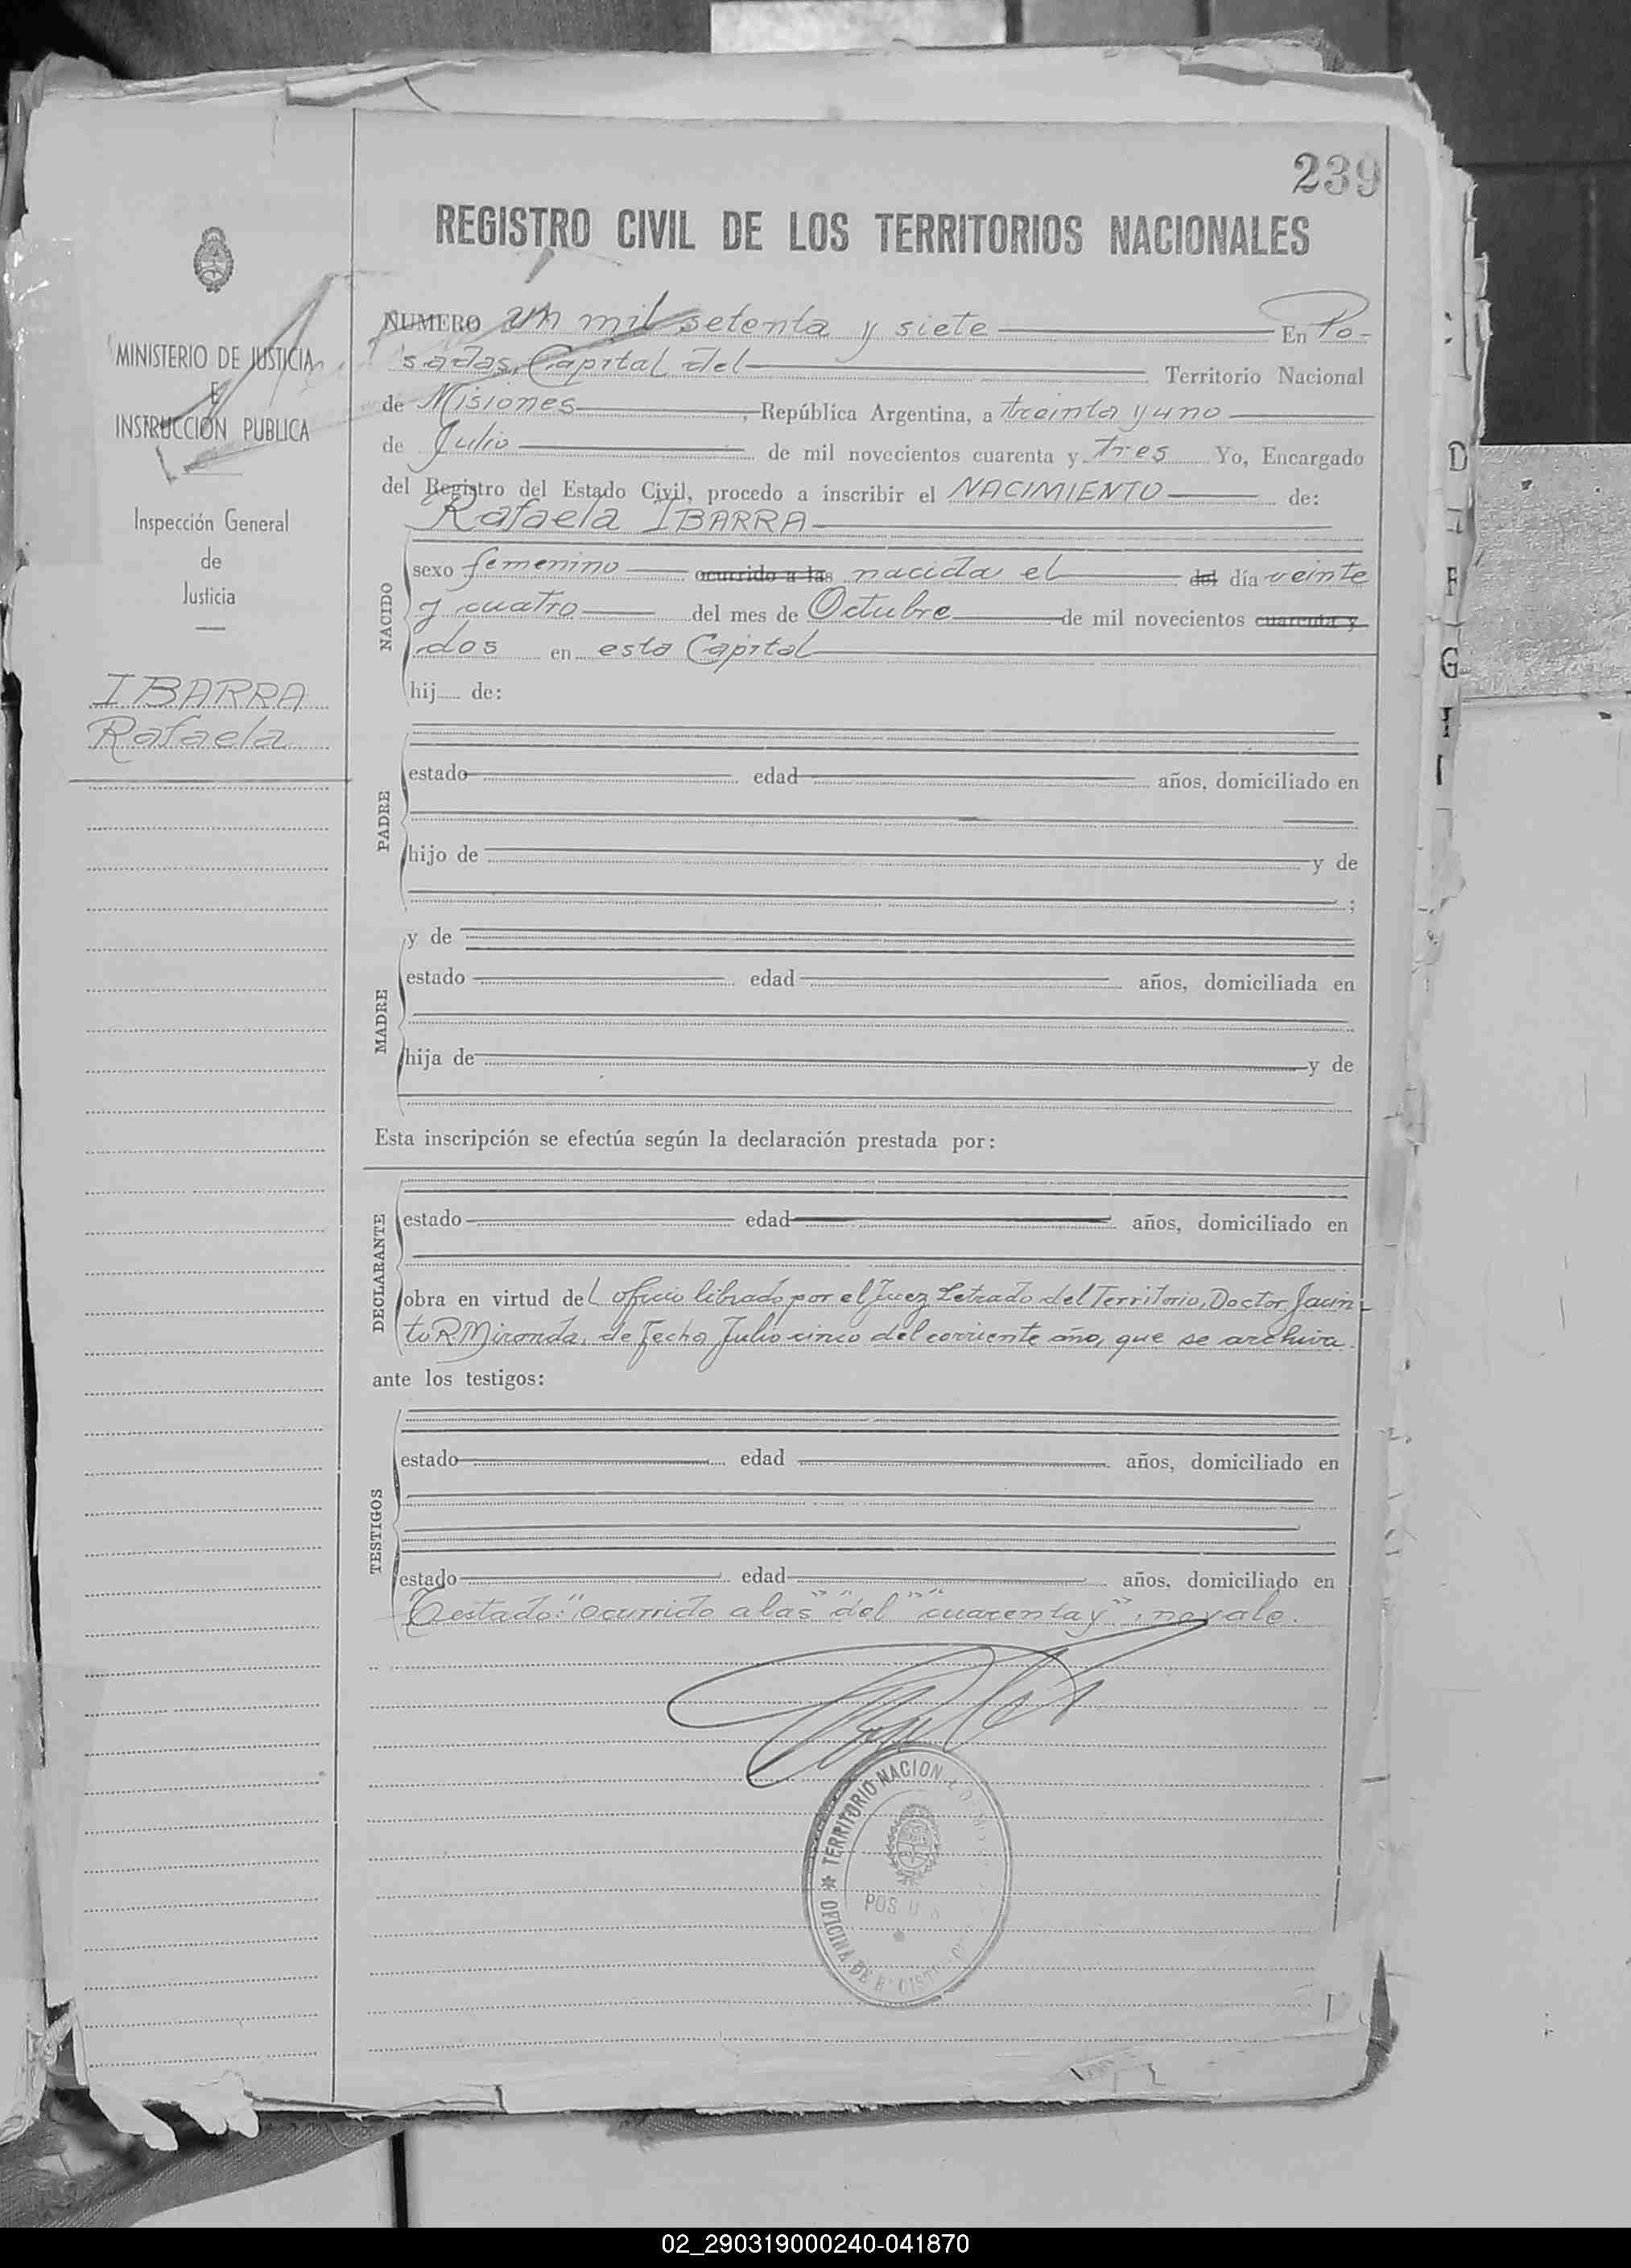 239
REGISTRO CIVIL DE LOS TERRITORIOS NACIONALES
MINISTERIO DE JUSTICIA
E
INSTRUCCION PUBLICA
Inspección General
de
Justicia
IBARRA
Rafaela
NUMERO un mil setenta y siete En Po-
sadas, Capital del Territorio Nacional
de Misiones, República Argentina, a treinta y uno
de Julio de mil novecientos cuarenta y tres Yo, Encargado
del Registro del Estado Civil, procedo a inscribir el NACIMIENTO de:
Rafaela IBARRA
NACIDO
sexo femenino ocurrido a las nacida el del día veinte
y cuatro del mes de Octubre de mil novecientos cuarenta y
dos en esta Capital
hij de:
PADRE
estado edad años, domiciliado en
hijo de y de
;
MADRE
y de
estado edad años, domiciliada en
hija de y de
Esta inscripción se efectúa según la declaración prestada por:
DECLARANTE
estado edad años, domiciliado en
obra en virtud del oficio librado por el Juez Letrado del Territorio, Doctor Jacin-
to R Miranda, de fecha Julio cinco del corriente año, que se archiva.
ante los testigos:
TESTIGOS
estado edad años, domiciliado en
estado edad años, domiciliado en
Testado: "ocurrido a las" "del" "cuarenta y": no vale.
TERRITORIO NACION
POS
OFICINA DE
D
F
G
I
02_290319000240-041870